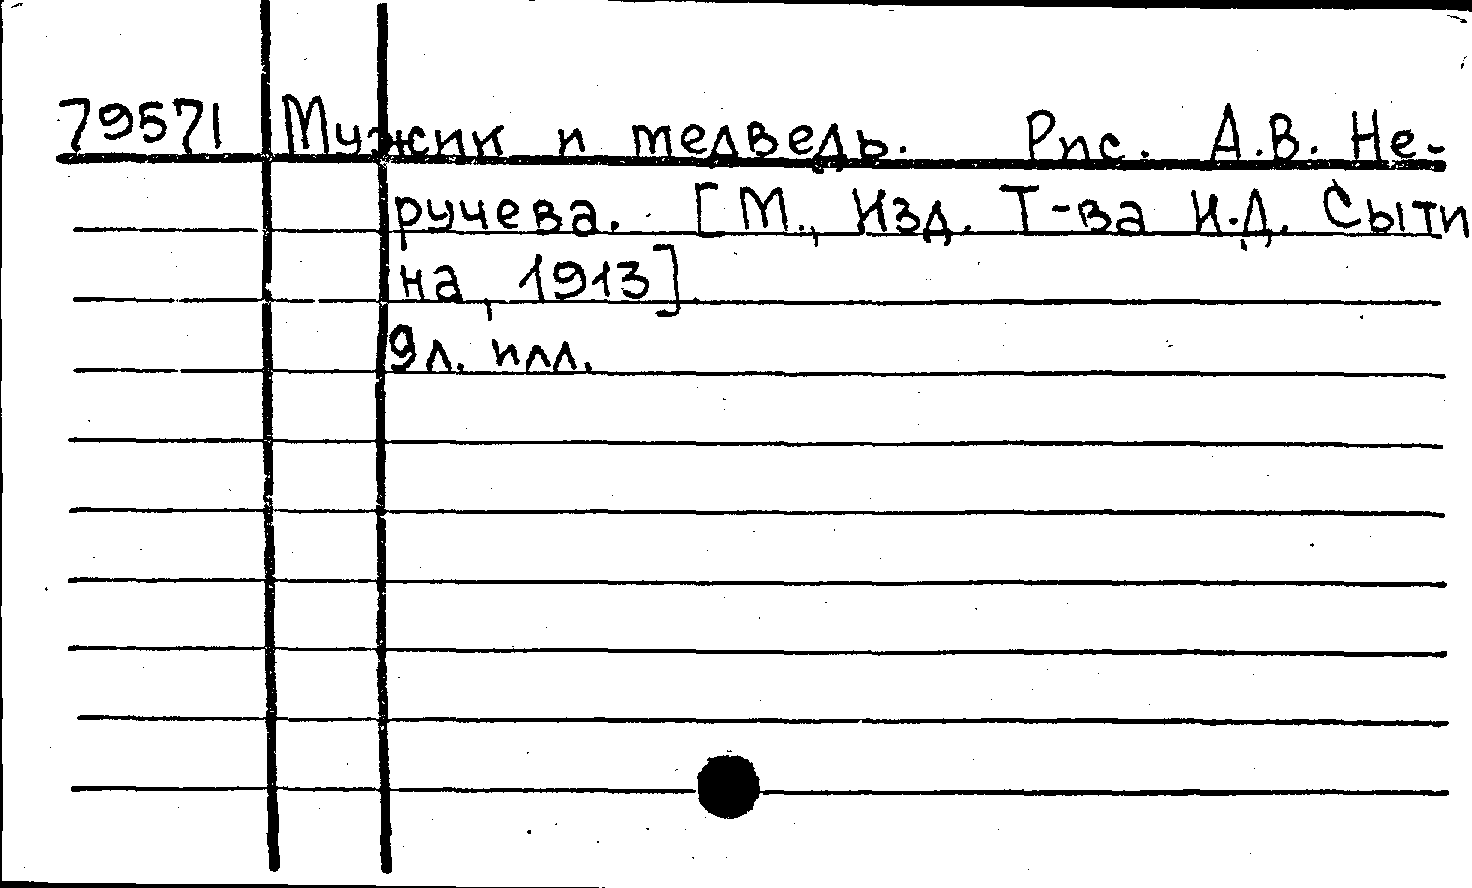 79571 Мужик и медведь. Рис. А.В. Не-
ручева. [М., Изд. Т-ва И.Д. Сыти
на, 1913]
9л. илл.